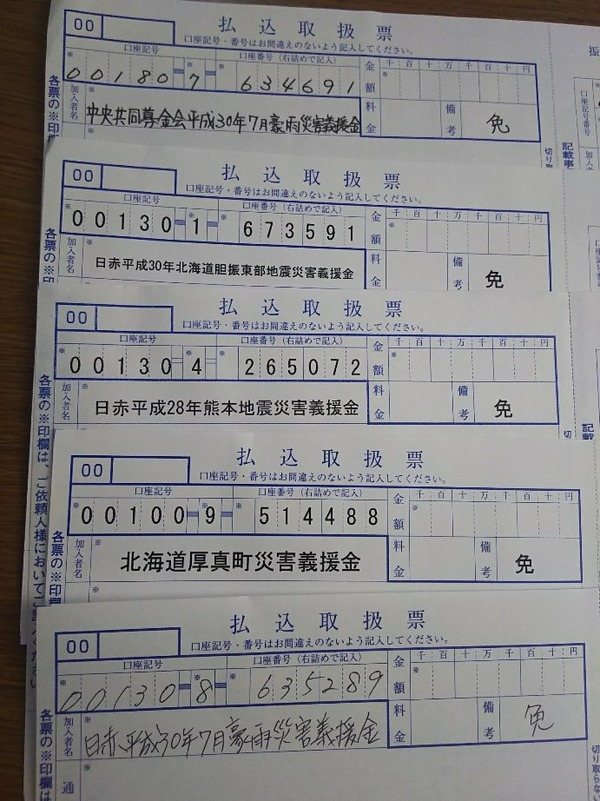 払込取扱票
00
口座記号・番号はお間違えのないよう記入してください。
口座記号 口座番号(右詰めで記入) 金額 千百十万千百十円
00180-7- 634691
加入者名 中央共同募金会平成30年7月豪雨災害義援金 料金 備考 免
払込取扱票
00
口座記号・番号はお間違えのないよう記入してください。
口座記号 口座番号(右詰めで記入) 金額 千百十万千百十円
00130-1- 673591
加入者名 日赤平成30年北海道胆振東部地震災害義援金 料金 備考 免
払込取扱票
00
口座記号・番号はお間違えのないよう記入してください。
口座記号 口座番号(右詰めで記入) 金額 千百十万千百十円
00130-4- 265072
加入者名 日赤平成28年熊本地震災害義援金 料金 備考 免
払込取扱票
00
口座記号・番号はお間違えのないよう記入してください。
口座記号 口座番号(右詰めで記入) 金額 千百十万千百十円
00100-9- 514488
加入者名 北海道厚真町災害義援金 料金 備考 免
払込取扱票
00
口座記号・番号はお間違えのないよう記入してください。
口座記号 口座番号(右詰めで記入) 金額 千百十万千百十円
00130-8- 635289
加入者名 日赤平成30年7月豪雨災害義援金 料金 備考 免
通
各票の※印欄
各票の※
各票の※印欄は、ご依頼人様において
各票の※印
各票の※印欄は
記載事
切り取
記載
切り取らな